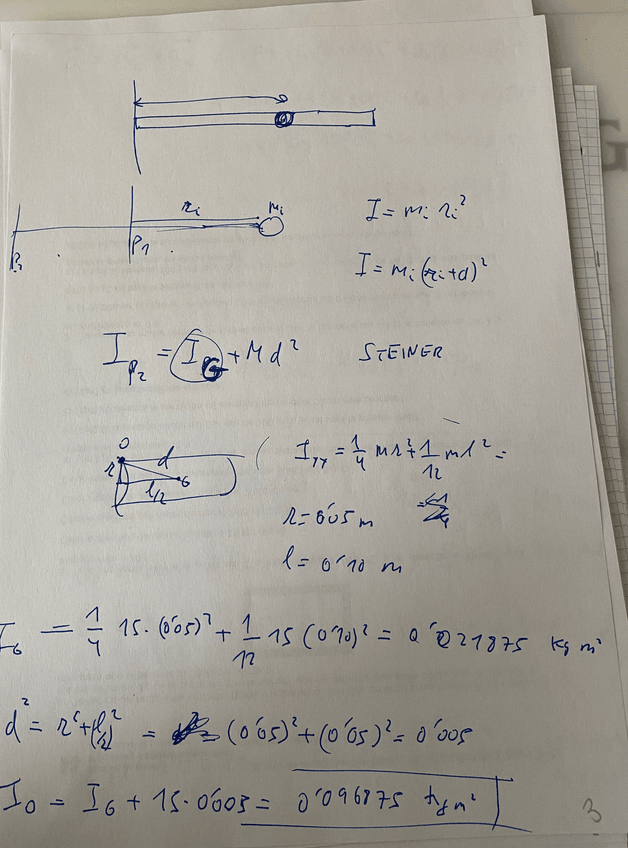 r_i m_i I = m_i r_i²
P_2 P_1
I = m_i (r_i + d)²
I_P2 = I_G + M d² STEINER
O
d
r G
l/2
I_yy = 1/4 m r² + 1/12 m l² =
r = 0'05 m
l = 0'10 m
I_G = 1/4 15 · (0'05)² + 1/12 15 (0'10)² = 0'021875 kg m²
d² = r² + (l/2)² = (0'05)² + (0'05)² = 0'005
I_O = I_G + 15 · 0'005 = 0'096875 kg m²
3
G